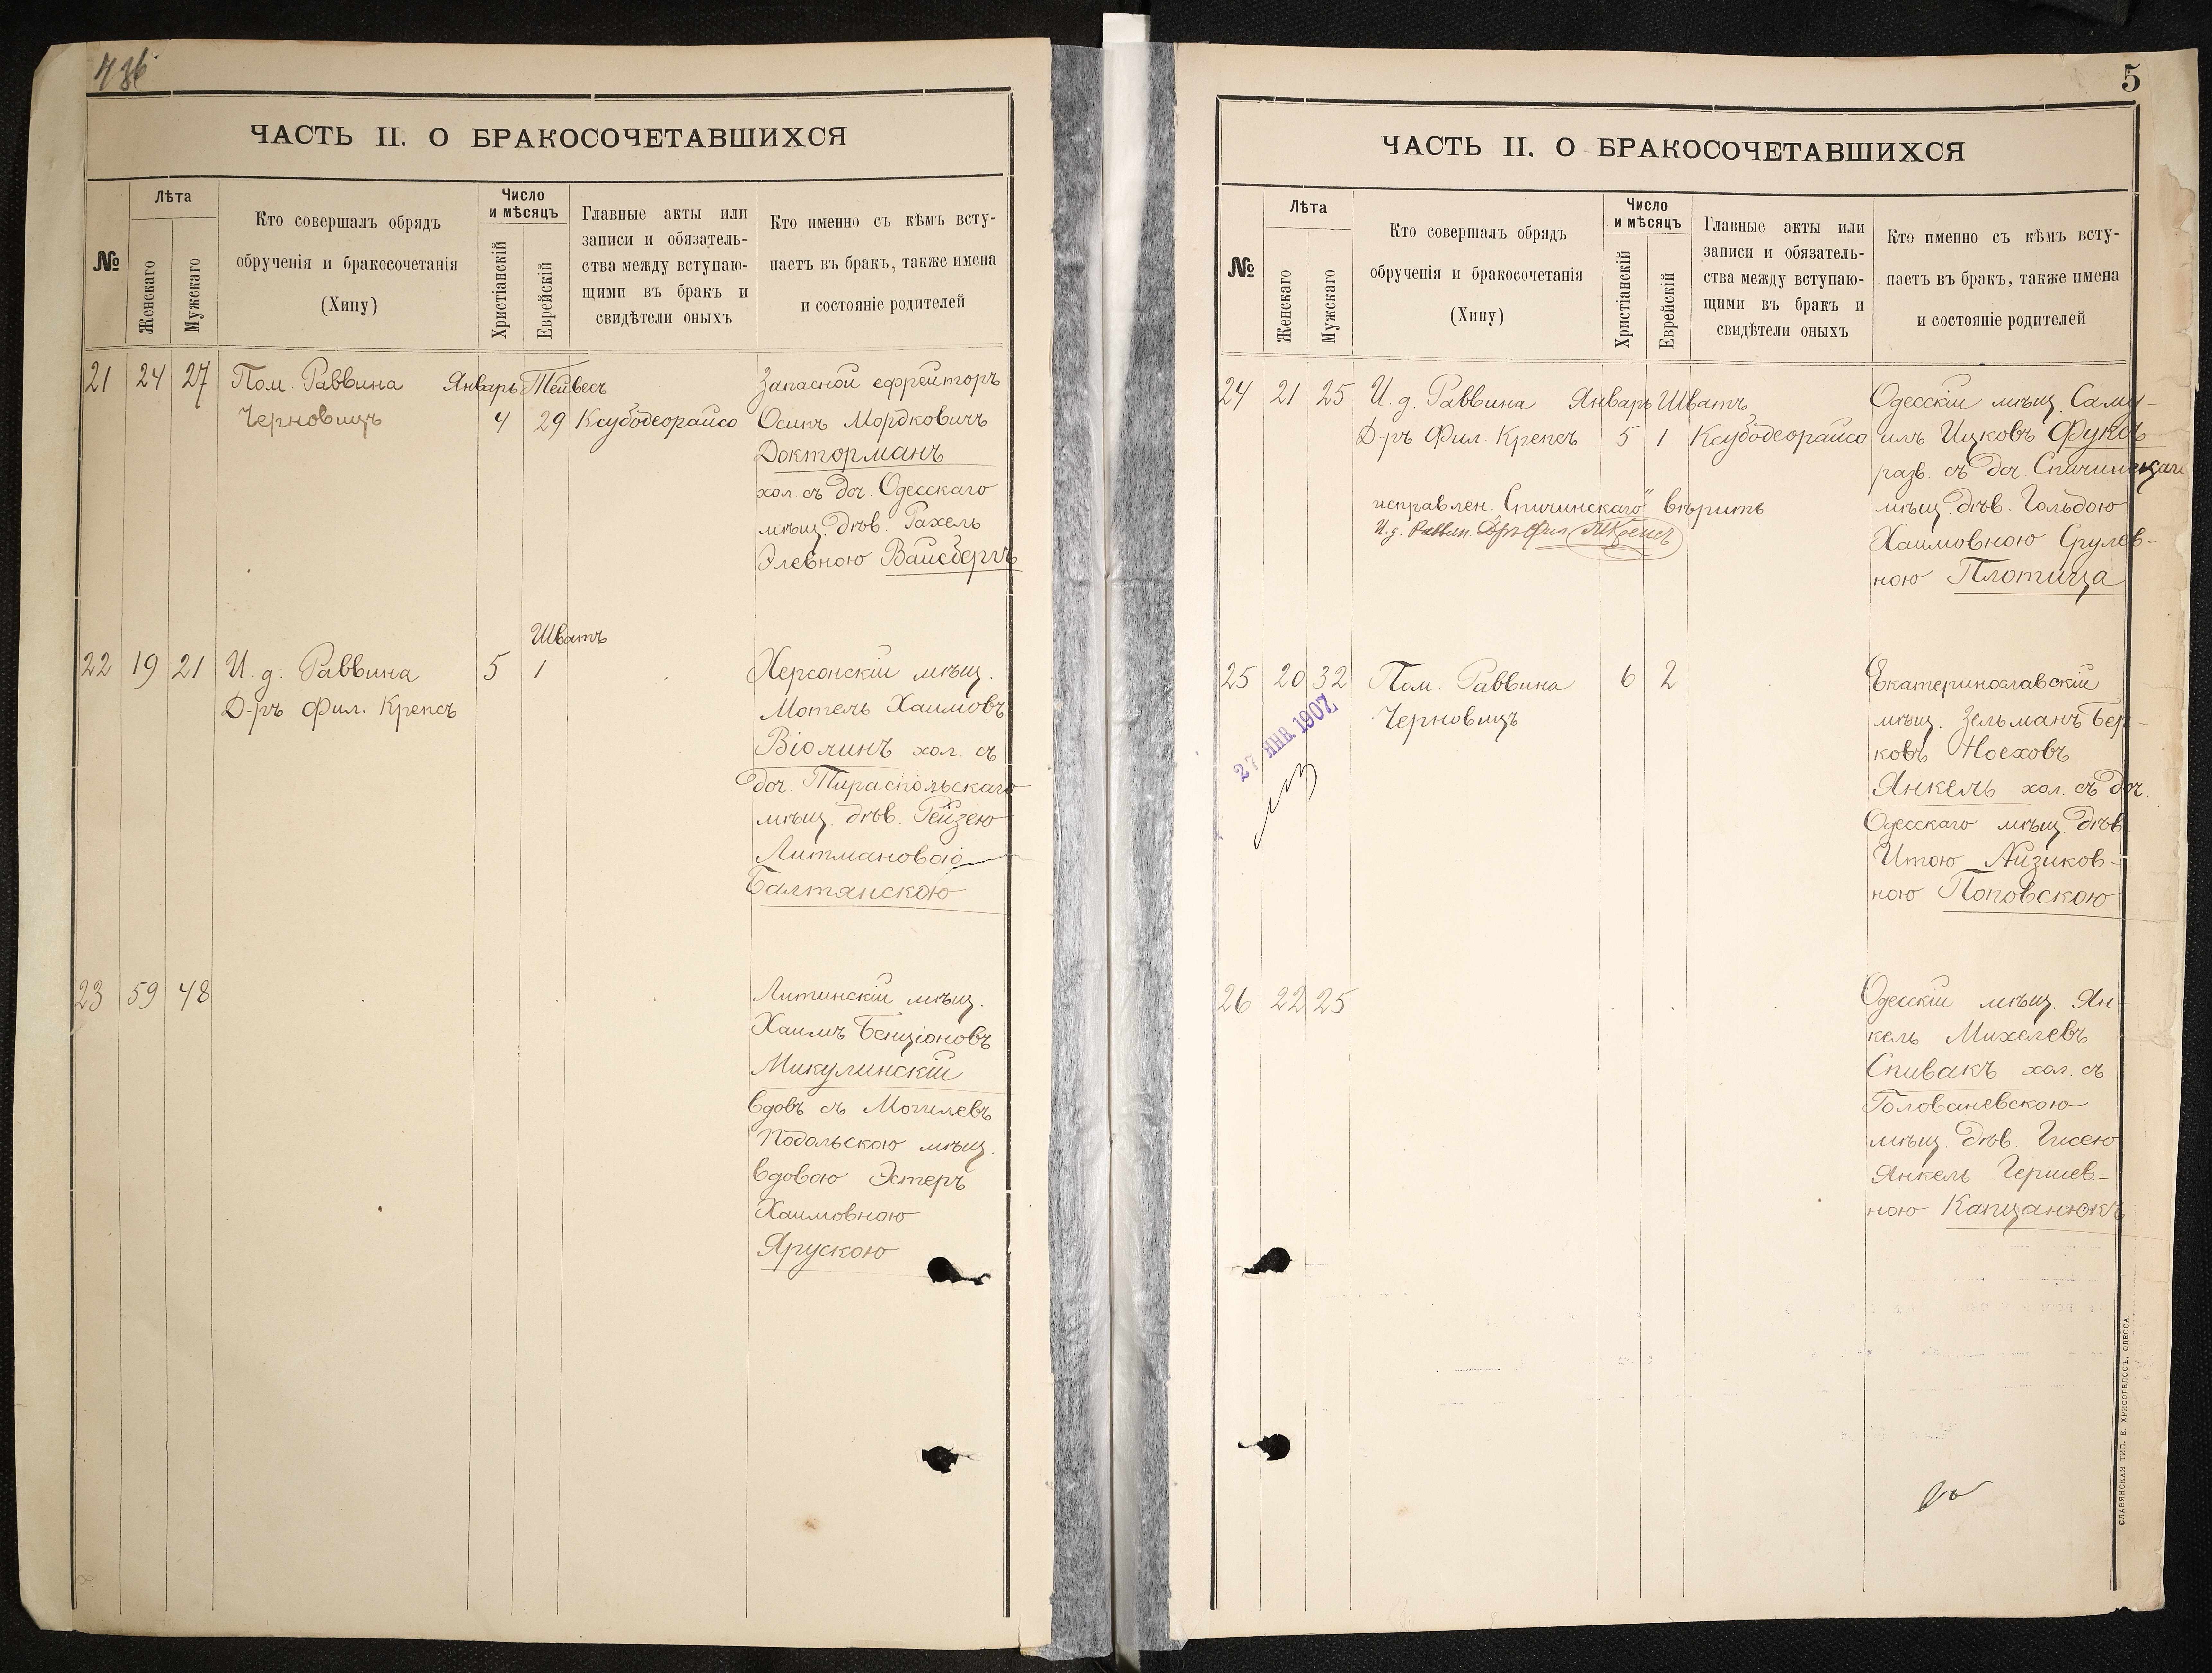 ЧАСТЬ II. О БРАКОСОЧЕТАВШИХСЯ
№
Лѣта
Женскаго
Мужскаго
Кто совершалъ обрядъ
обрученія и бракосочетанія
(Хипу)
Число
и мѣсяцъ
Христіанскій
Еврейскій
Главные акты или
записи и обязатель-
ства между вступаю-
щими въ бракъ и
свидѣтели оныхъ
Кто именно съ кѣмъ всту-
паетъ въ бракъ, также имена
и состояніе родителей
21 24 27 Пом. Раввина Январь Тейвесъ Запасной ефрейторъ
Черновицъ 4 29 Ксубодеорайсо Осипъ Мордковичъ
Докторманъ
хол. съ доч. Одесскаго
мѣщ. дѣв. Рахель
Элевною Вайсбергъ
Шватъ
22 19 21 И. д. Раввина 5 1 Херсонскій мѣщ.
Д-ръ Фил. Крепсъ Мотель Хаимовъ
Віолинъ хол. съ
доч. Тираспольскаго
мѣщ. дѣв. Рейзею
Литмановою
Балтянскою
23 59 48 Литинскій мѣщ.
Хаимъ Бенціоновъ
Микулинскій
вдовъ съ Могилевъ
Подольскою мѣщ.
вдовою Эстеръ
Хаимовною
Ярускою
5
ЧАСТЬ II. О БРАКОСОЧЕТАВШИХСЯ
№
Лѣта
Женскаго
Мужскаго
Кто совершалъ обрядъ
обрученія и бракосочетанія
(Хипу)
Число
и мѣсяцъ
Христіанскій
Еврейскій
Главные акты или
записи и обязатель-
ства между вступаю-
щими въ бракъ и
свидѣтели оныхъ
Кто именно съ кѣмъ всту-
паетъ въ бракъ, также имена
и состояніе родителей
24 21 25 И. д. Раввина Январь Шватъ Одесскій мѣщ. Саму-
Д-ръ Фил. Крепсъ 5 1 Ксубодеорайсо илъ Ицковъ Фуксъ
разв. съ доч. Спичинецкаго
исправлен. Спичинскаго" вѣрить мѣщ. дѣв. Гольдою
И. д. Раввин. Д-ръ Фил. Крепсъ Хаимовною Срулев-
ною Плотица
25 20 32 Пом. Раввина 6 2 Екатеринославскій
Черновицъ мѣщ. Зельманъ Бер-
27 ЯНВ. 1907 ковъ Ноеховъ
Янкель хол. съ доч.
Одесскаго мѣщ. дѣв.
Итою Айзиков-
ною Поповскою
26 22 25 Одесскій мѣщ. Ян-
кель Михелевъ
Спивакъ хол. съ
Голованевскою
мѣщ. дѣв. Гисею
Янкель Гершев-
ною Капцанюкъ
СЛАВЯНСКАЯ ТИП. Е. ХРИСОГЕЛОСЪ, ОДЕССА.